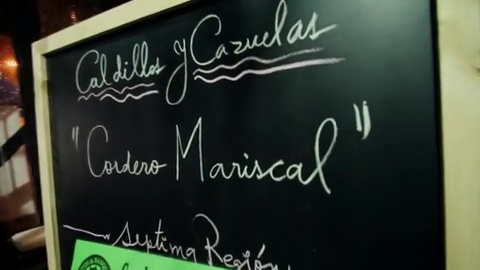 Caldillos y Cazuelas
"Cordero Mariscal"
Septima Región